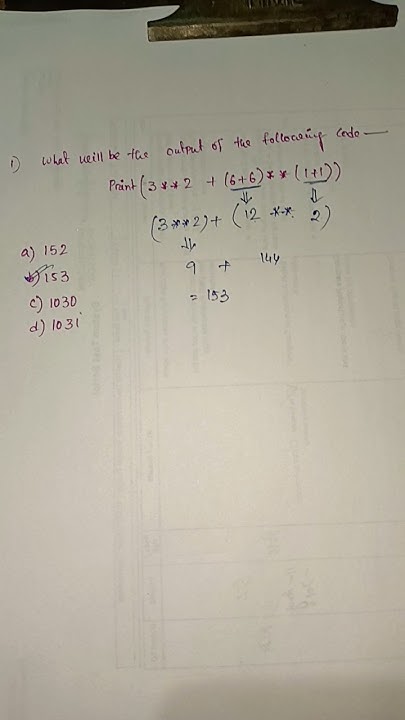 1) What will be the output of the following code —
Print(3**2 + (6+6)**(1+1))
(3**2)+ (12 ** 2)
a) 152
9 + 144
b) 153
= 153
c) 1030
d) 1031